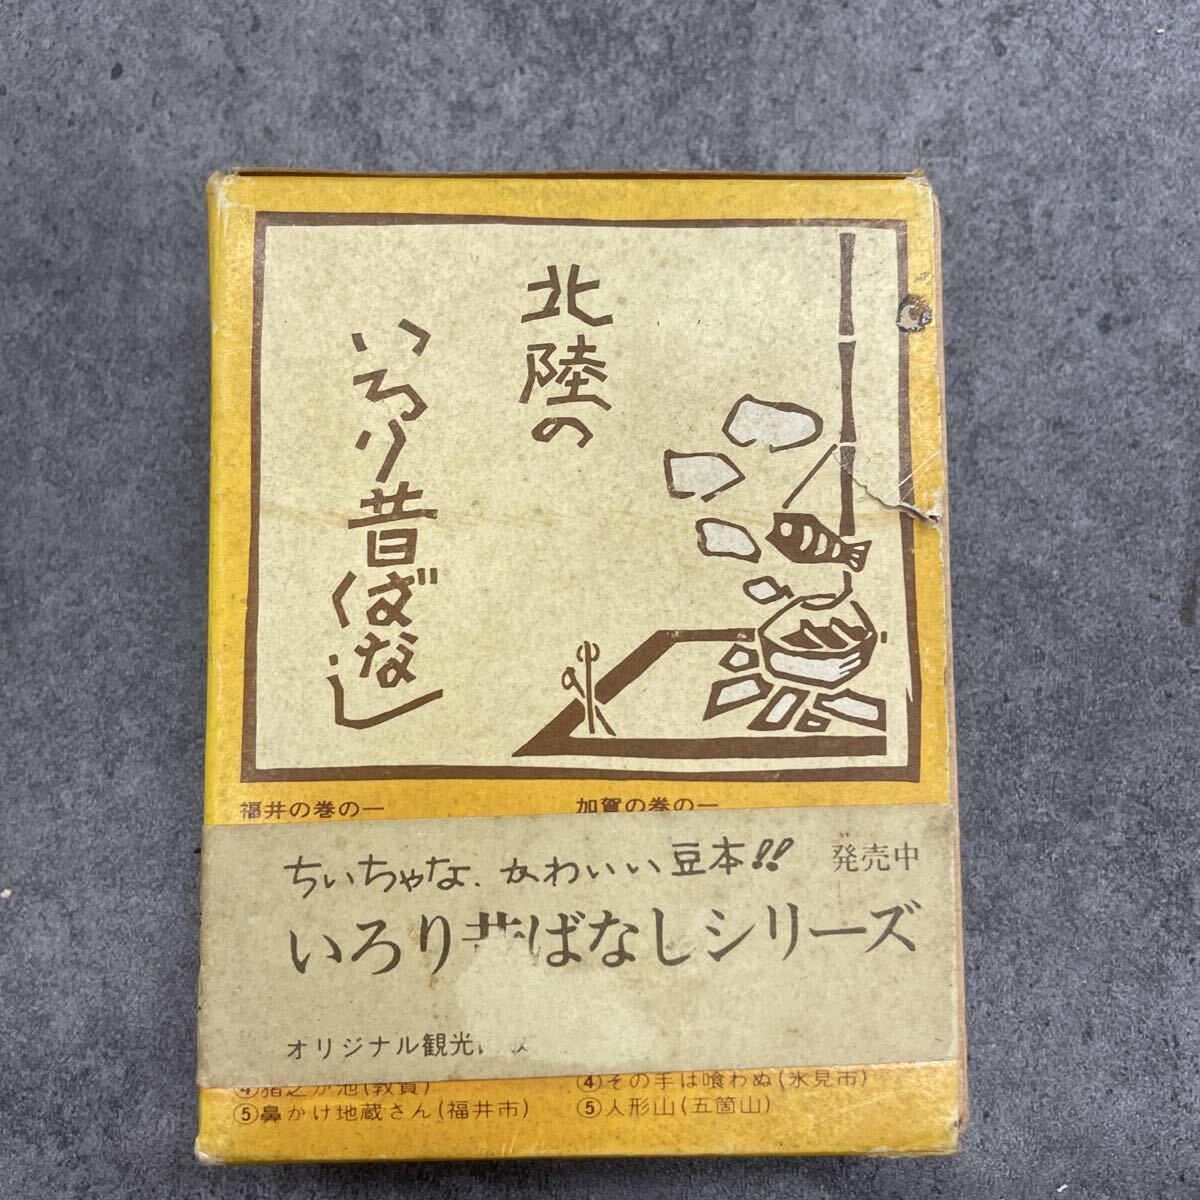 北陸の
いろり昔ばなし
福井の巻の一
加賀の巻の一
ちいちゃな、かわいい豆本!!
発売中
いろり昔ばなしシリーズ
オリジナル観光
④猪之が池(敦賀)
⑤鼻かけ地蔵さん(福井市)
④その手は喰わぬ(氷見市)
⑤人形山(五箇山)